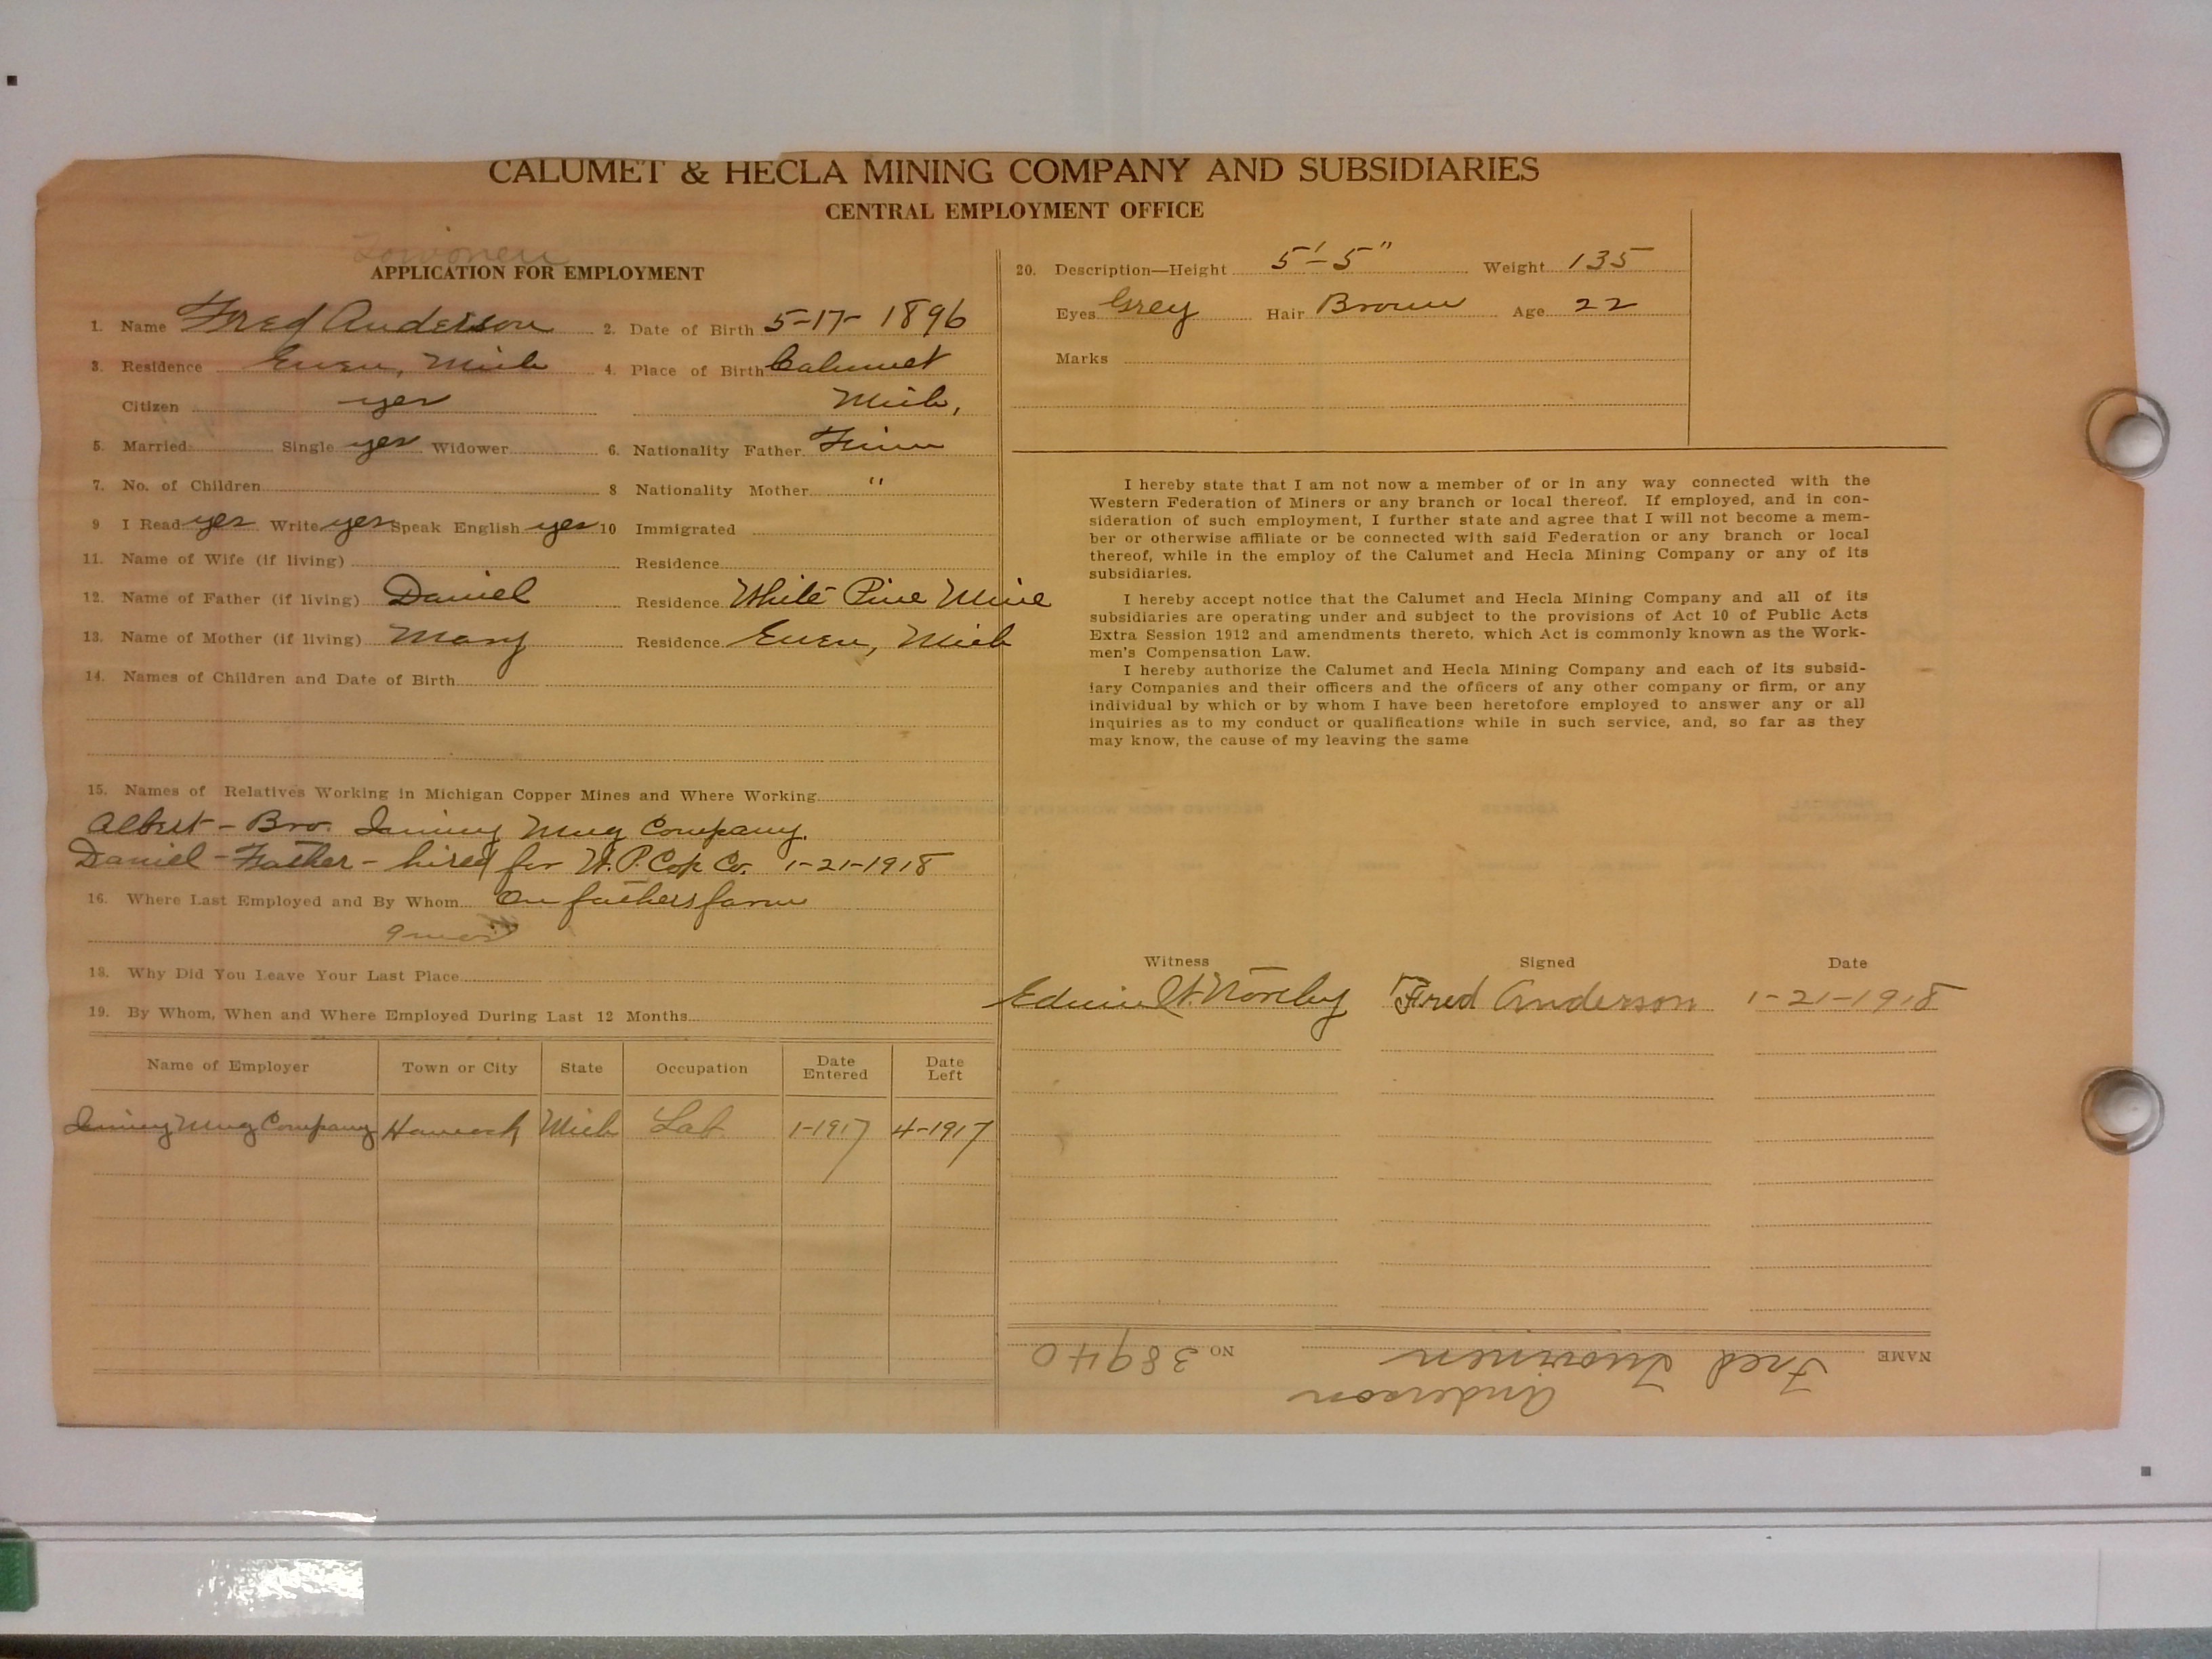 CALUMET & HECLA MINING COMPANY AND SUBSIDIARIES
CENTRAL EMPLOYMENT OFFICE
APPLICATION FOR EMPLOYMENT
1. Name Fred Anderson 2. Date of Birth 5-17-1896
3. Residence Ewen, Mich 4. Place of Birth Calumet
Citizen yes Mich,
5. Married Single yes Widower 6. Nationality Father Finn
7. No. of Children 8 Nationality Mother "
9 I Read yes Write yes Speak English yes 10 Immigrated
11. Name of Wife (if living) Residence
12. Name of Father (if living) Daniel Residence White Pine Mine
13. Name of Mother (if living) Mary Residence Ewen, Mich
14. Names of Children and Date of Birth
15. Names of Relatives Working in Michigan Copper Mines and Where Working
Albert - Bro. Mng Company.
Daniel - Father - hired for W.P. Cop Co. 1-21-1918
16. Where Last Employed and By Whom On fathers farm
9 mos
18. Why Did You Leave Your Last Place
19. By Whom, When and Where Employed During Last 12 Months
Name of Employer Town or City State Occupation Date Entered Date Left
Mng Company Hancock Mich Lab. 1-1917 4-1917
20. Description—Height 5'-5" Weight 135
Eyes Grey Hair Brown Age 22
Marks
I hereby state that I am not now a member of or in any way connected with the
Western Federation of Miners or any branch or local thereof. If employed, and in con-
sideration of such employment, I further state and agree that I will not become a mem-
ber or otherwise affiliate or be connected with said Federation or any branch or local
thereof, while in the employ of the Calumet and Hecla Mining Company or any of its
subsidiaries.
I hereby accept notice that the Calumet and Hecla Mining Company and all of its
subsidiaries are operating under and subject to the provisions of Act 10 of Public Acts
Extra Session 1912 and amendments thereto, which Act is commonly known as the Work-
men's Compensation Law.
I hereby authorize the Calumet and Hecla Mining Company and each of its subsid-
iary Companies and their officers and the officers of any other company or firm, or any
individual by which or by whom I have been heretofore employed to answer any or all
inquiries as to my conduct or qualifications while in such service, and, so far as they
may know, the cause of my leaving the same
Witness Signed Date
Edwin Fred Anderson 1-21-1918
Anderson
NAME Fred NO 38940